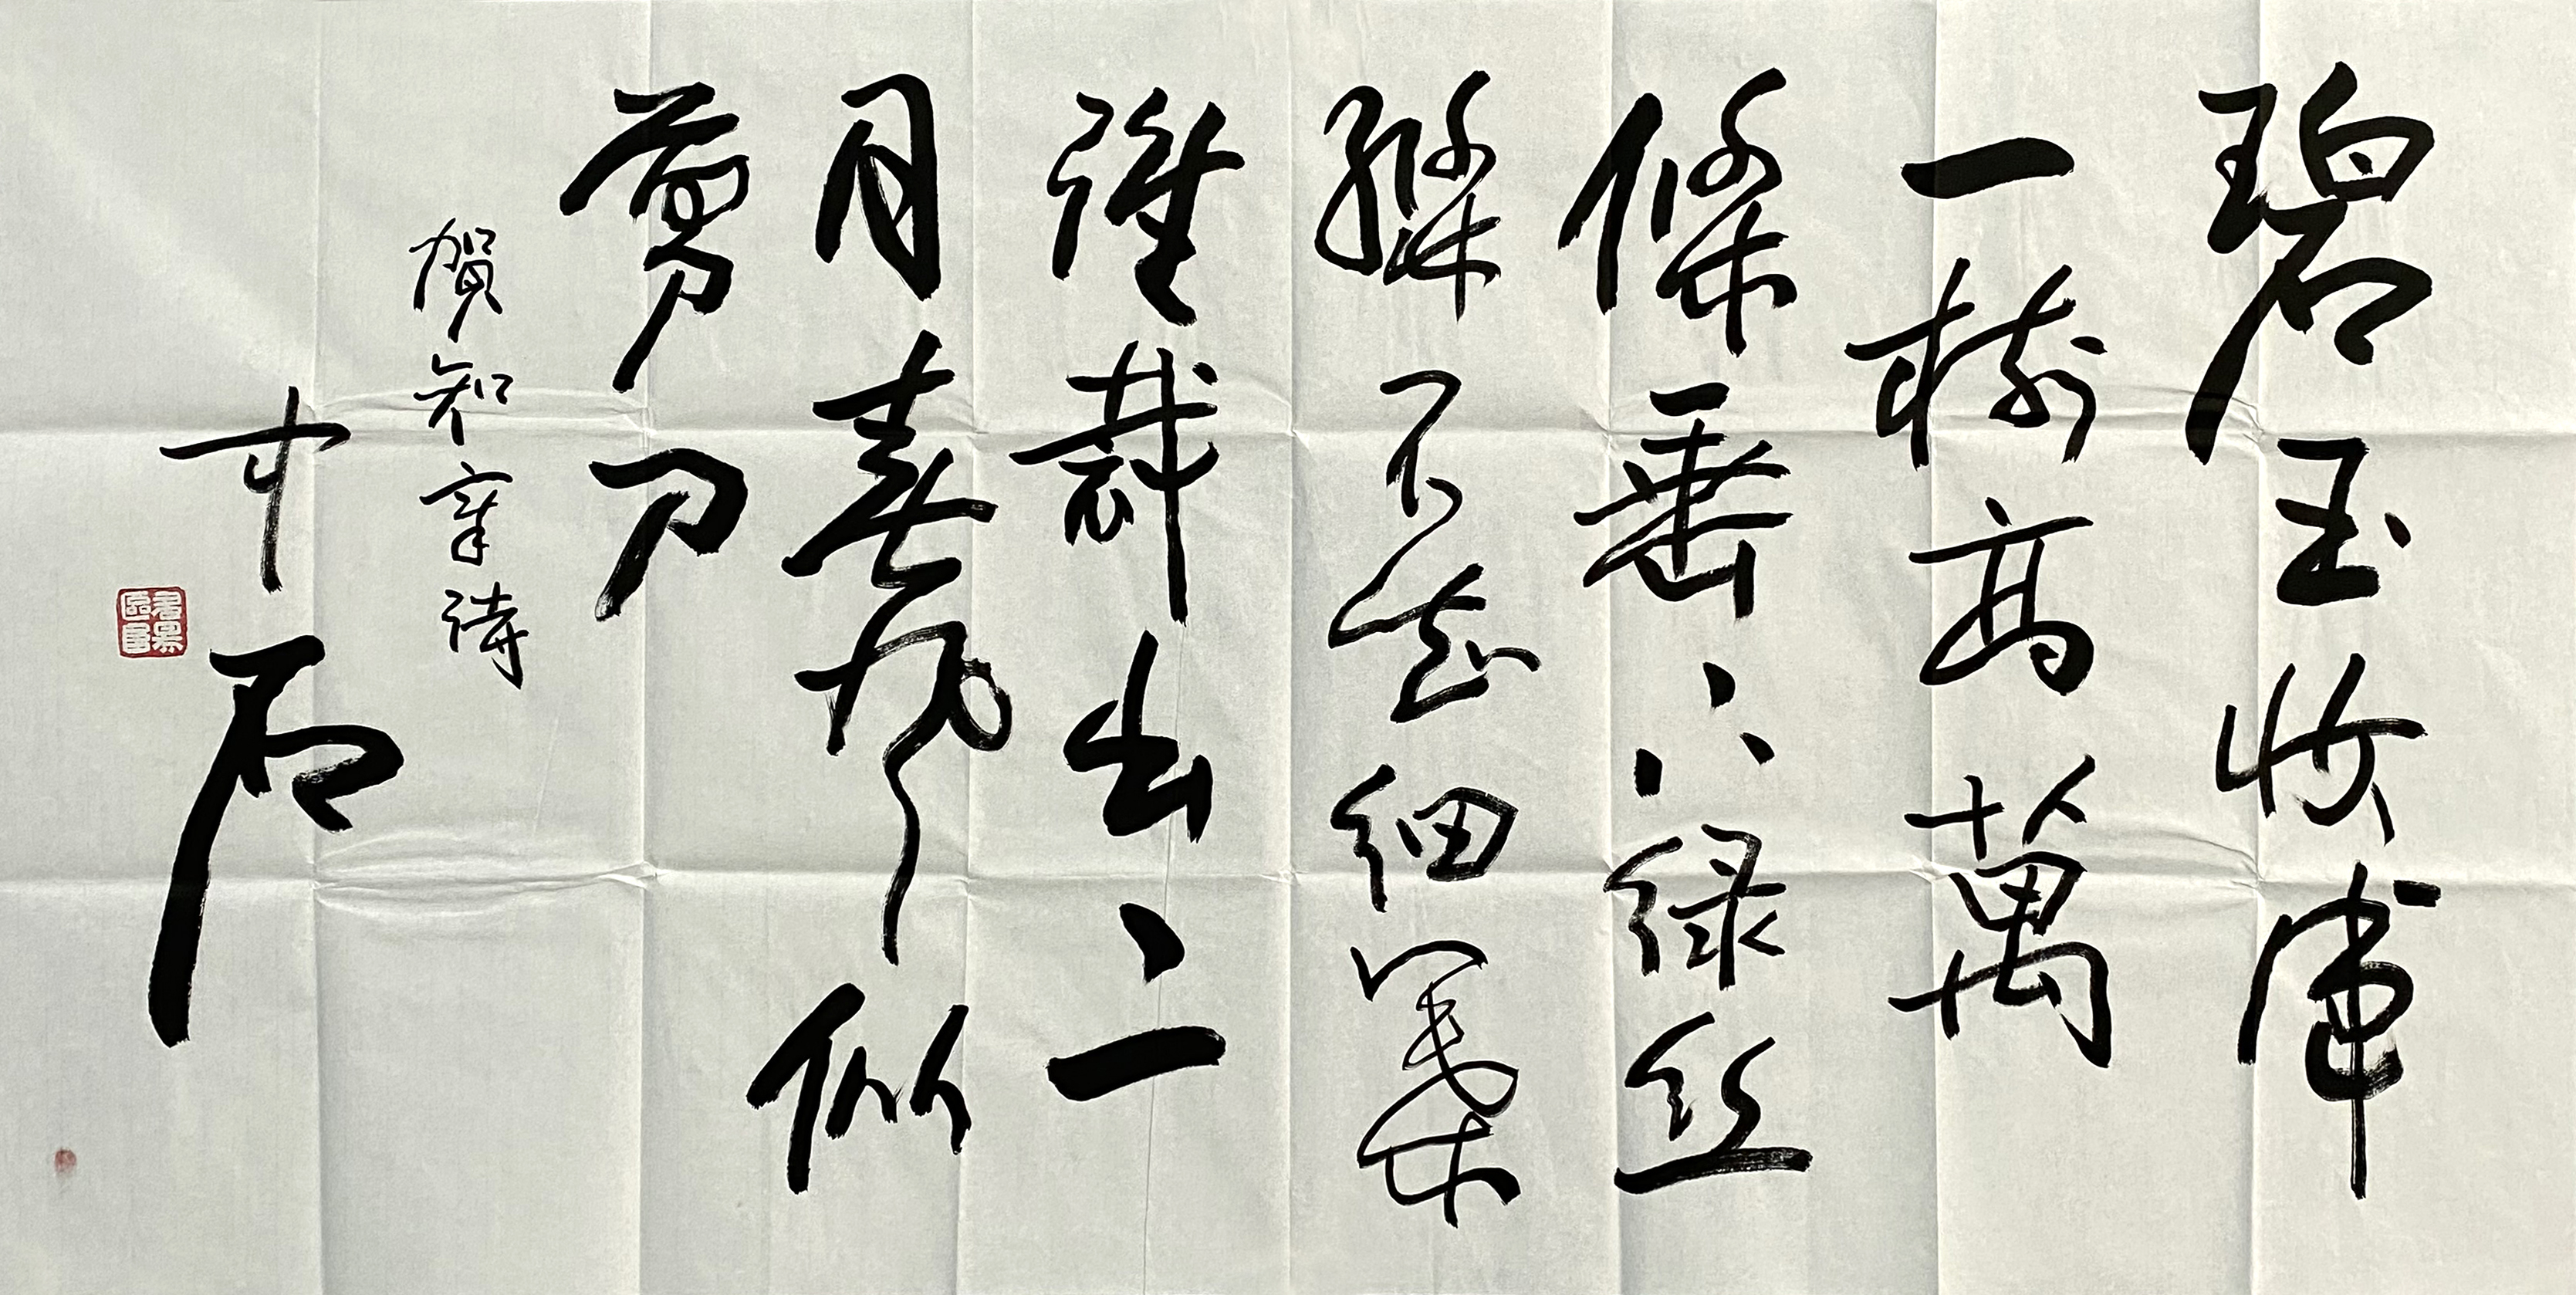 碧玉妝成
一樹高萬
條垂下綠丝
縧不知細葉
誰裁出二
月春風似
剪刀
賀知章詩
中石